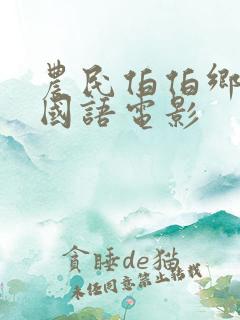 農民伯伯鄉
國語電影
貪睡de猫
未经同意禁止转载